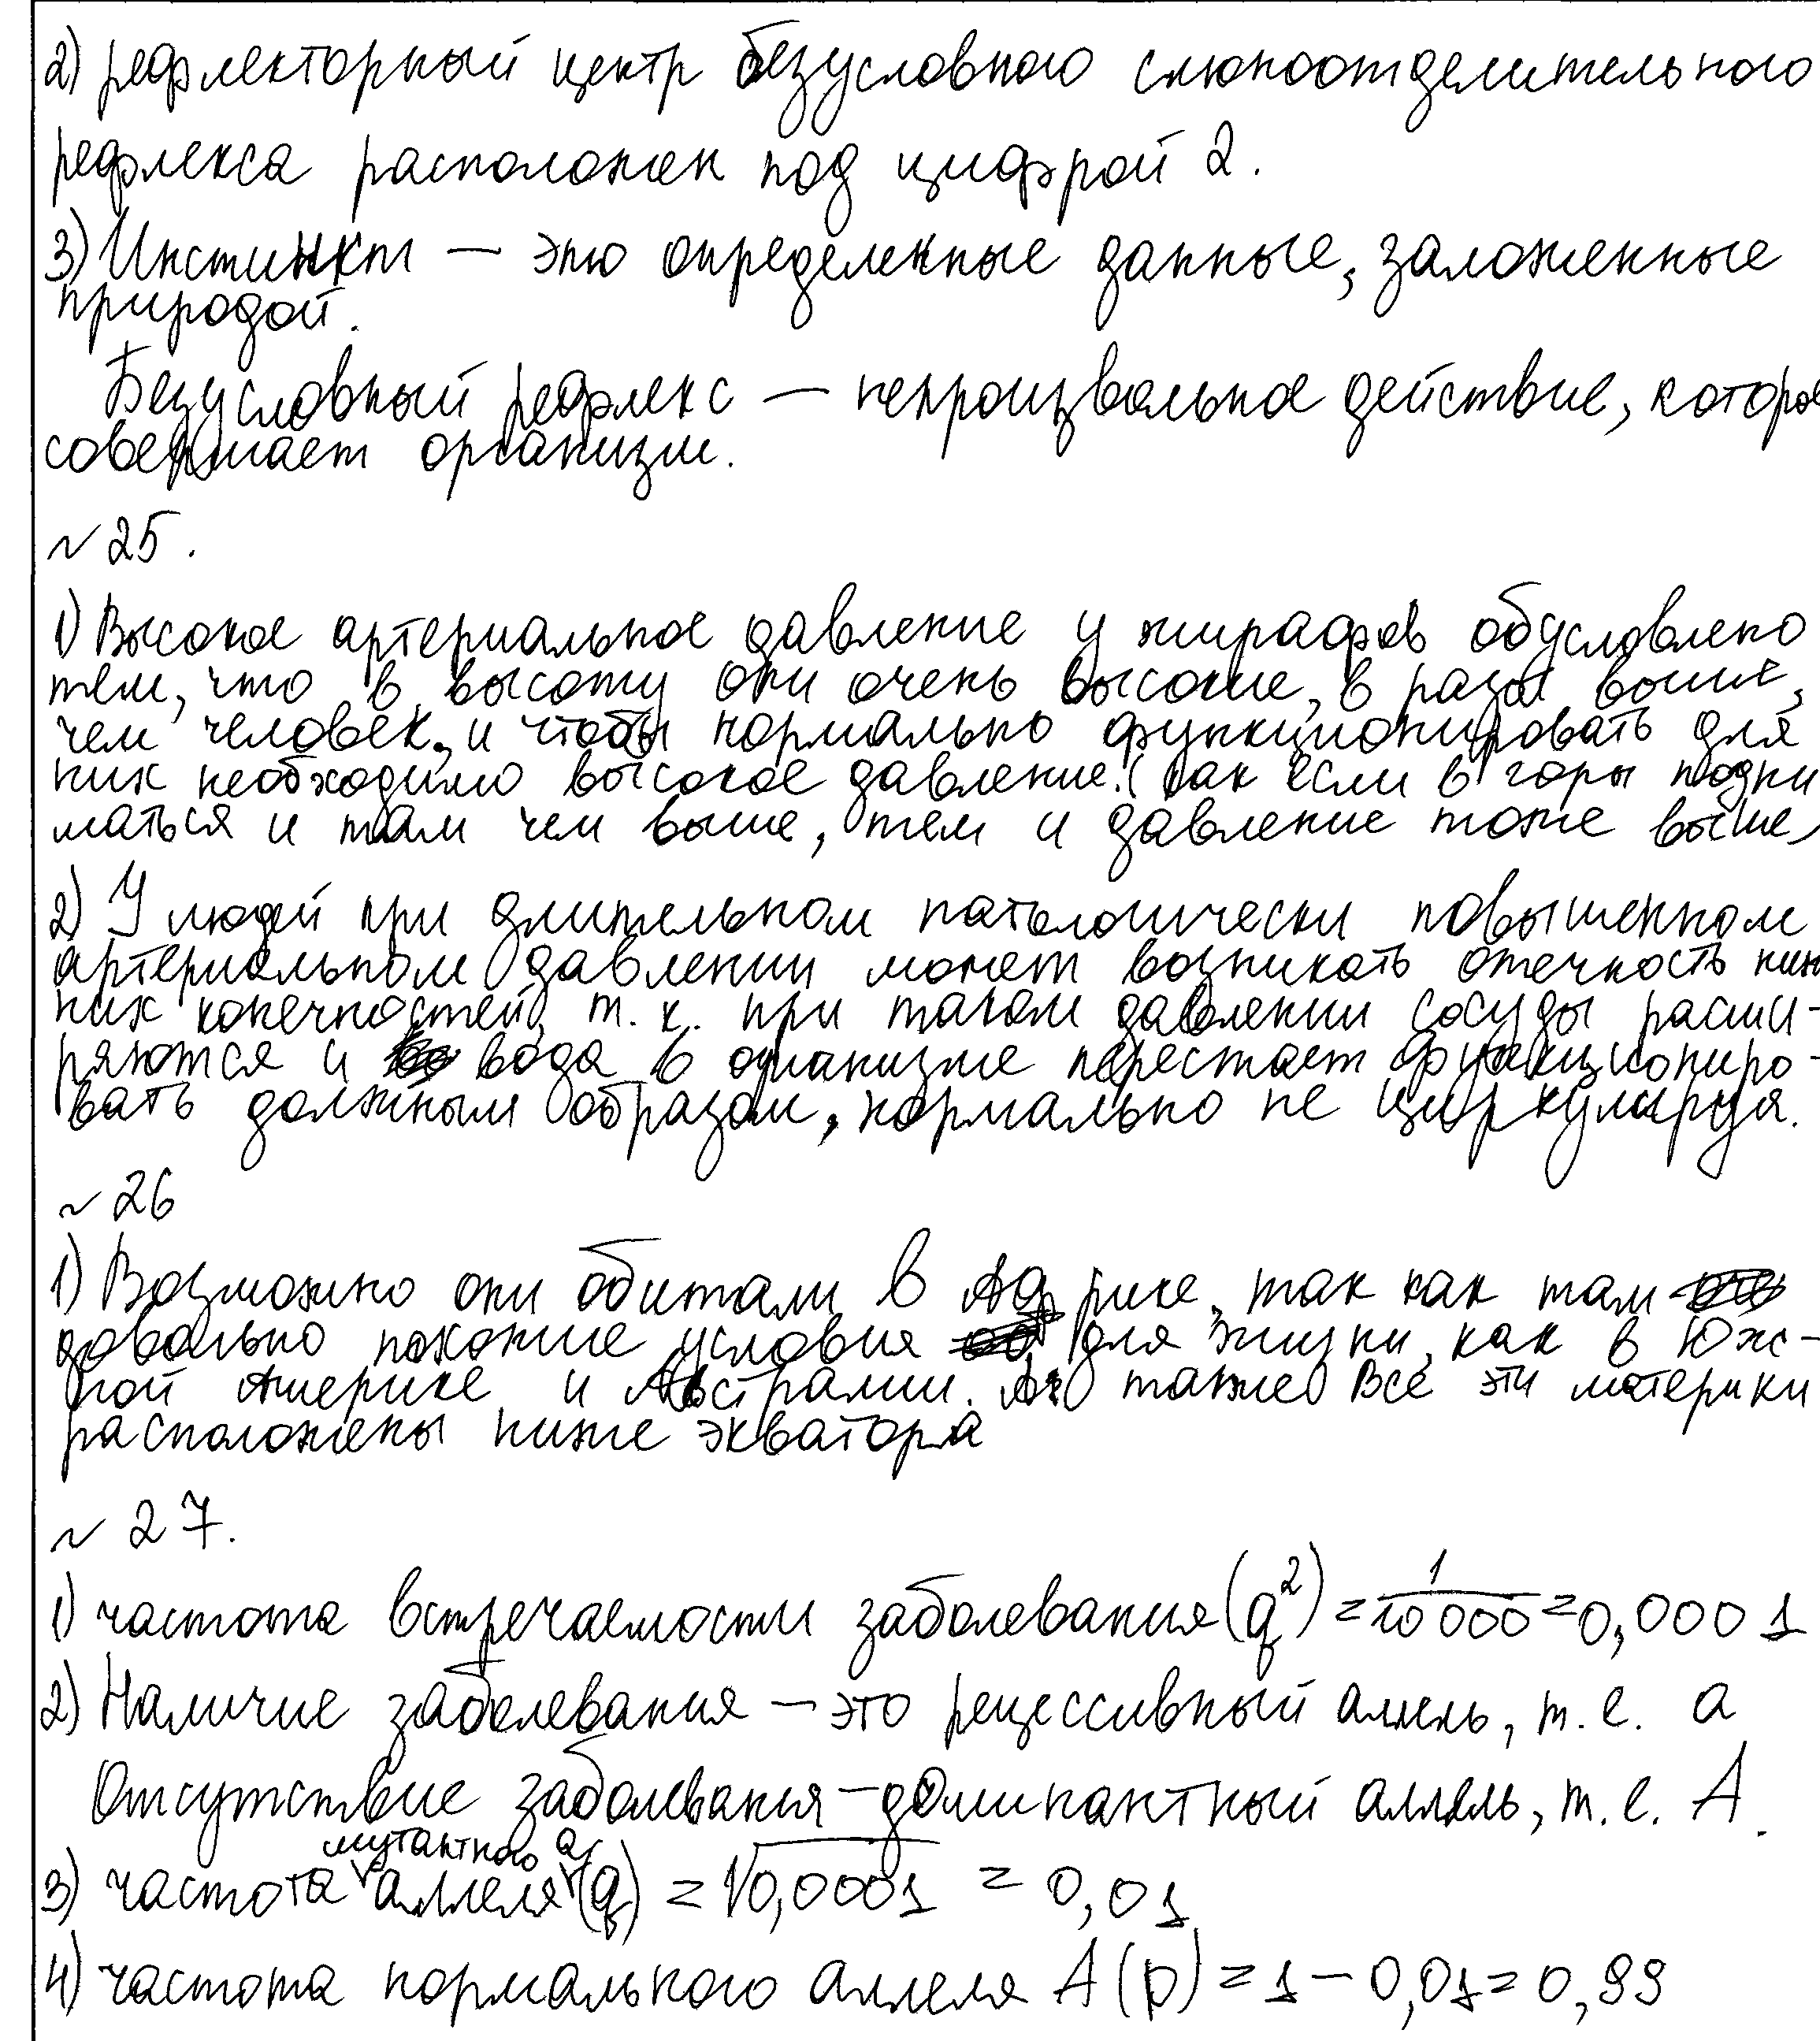 2) рефлекторный центр безусловного слюноотделительного
рефлекса расположен под цифрой 2.
3) Инстинкт — это определенные данные, заложенные
природой.
Безусловный рефлекс — непроизвольное действие, которое
совершает организм.
~ 25.
1) Высокое артериальное давление у жирафов обусловлено
тем, что в высоту они очень высокие, в разы выше,
чем человек, и чтобы нормально функционировать для
них необходимо высокое давление. (как если в горы подни
маться и там чем выше, тем и давление тоже выше)
2) У людей при длительном патологически повышенном
артериальном давлении может возникать отечность ниж
них конечностей, т.к. при таком давлении сосуды расши-
ряются и вода в организме перестает функциониро-
вать должным образом, нормально не циркулируя.
~ 26
1) Возможно они обитали в Африке, так как там
довольно похожие условия для жизни, как в Юж-
ной Америке и Австралии. А также все эти материки
расположены ниже экватора
~ 27.
1) частота встречаемости заболевания (q²) = 1/10 000 = 0,0001
2) Наличие заболевания — это рецессивный аллель, т.е. а
Отсутствие заболевания — доминантный аллель, т.е. А.
3) частота мутантного аллеля а (q) = √0,0001 = 0,01
4) частота нормального аллеля А (p) = 1 – 0,01 = 0,99